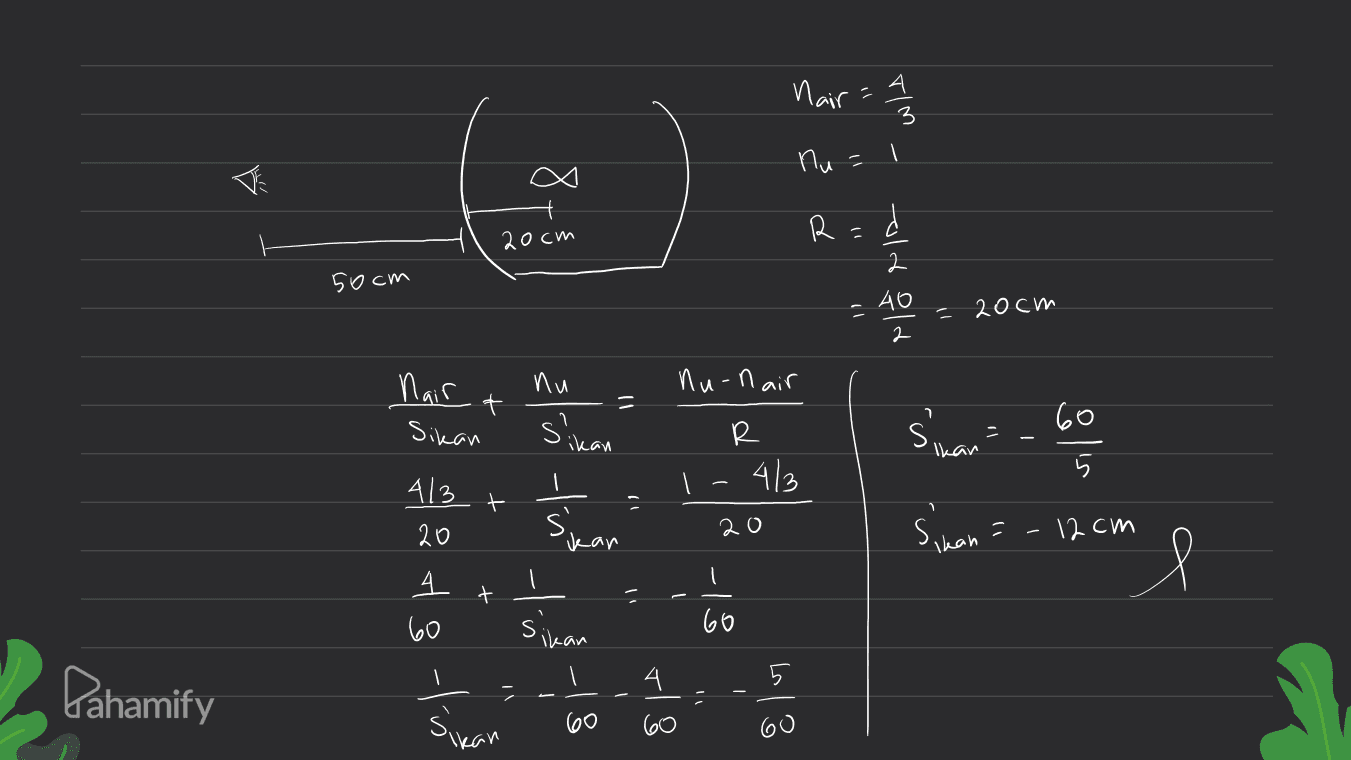 20 cm
50 cm
nair = 4/3
nu = 1
R = d/2
= 40/2 = 20 cm
nair/Sikan + nu/S'ikan = nu - nair/R
4/3/20 + 1/S'ikan = 1 - 4/3/20
4/60 + 1/S'ikan = - 1/60
1/S'ikan = - 1/60 - 4/60 = - 5/60
S'ikan = - 60/5
S'ikan = - 12 cm
Pahamify